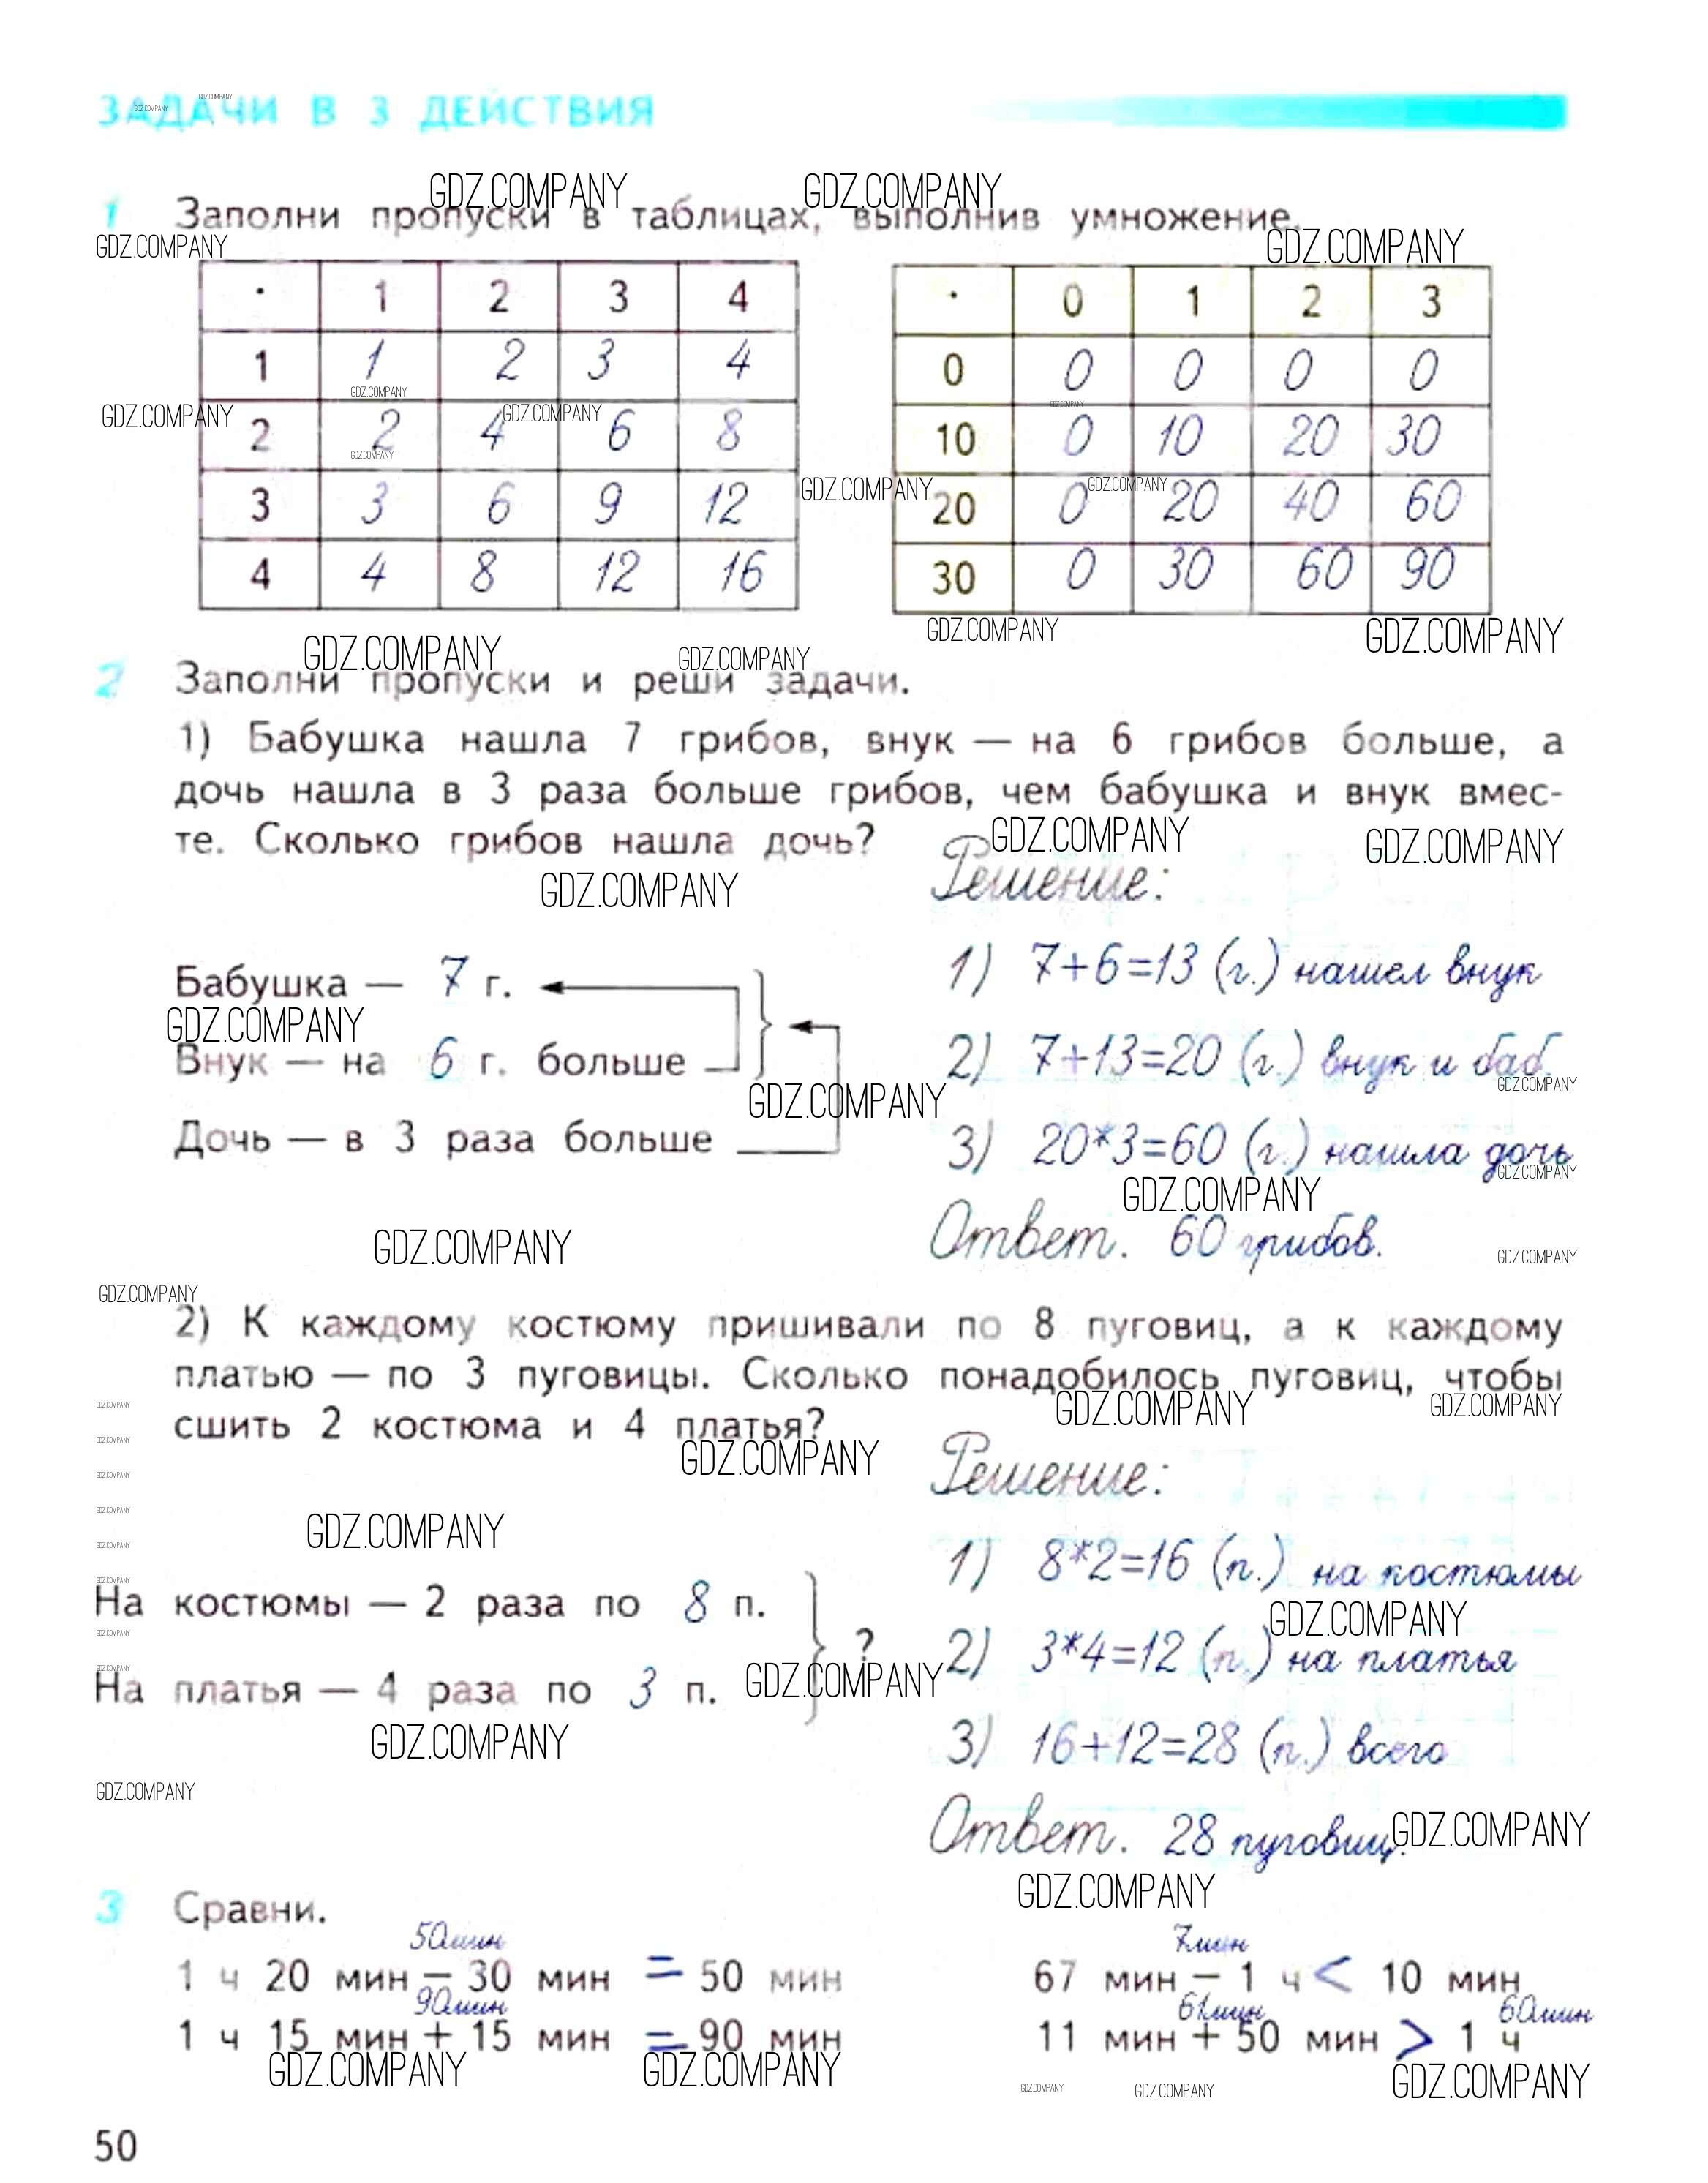 ЗАДАЧИ В 3 ДЕЙСТВИЯ
1 Заполни пропуски в таблицах, выполнив умножение.
· 1 2 3 4
1 1 2 3 4
2 2 4 6 8
3 3 6 9 12
4 4 8 12 16
· 0 1 2 3
0 0 0 0 0
10 0 10 20 30
20 0 20 40 60
30 0 30 60 90
2 Заполни пропуски и реши задачи.
1) Бабушка нашла 7 грибов, внук — на 6 грибов больше, а
дочь нашла в 3 раза больше грибов, чем бабушка и внук вмес-
те. Сколько грибов нашла дочь?
Решение:
Бабушка — 7 г.
1) 7+6=13 (г.) нашел внук
Внук — на 6 г. больше
2) 7+13=20 (г.) внук и баб.
Дочь — в 3 раза больше
3) 20*3=60 (г.) нашла дочь
Ответ. 60 грибов.
2) К каждому костюму пришивали по 8 пуговиц, а к каждому
платью — по 3 пуговицы. Сколько понадобилось пуговиц, чтобы
сшить 2 костюма и 4 платья?
Решение:
1) 8*2=16 (п.) на костюмы
На костюмы — 2 раза по 8 п.
?
2) 3*4=12 (п.) на платья
На платья — 4 раза по 3 п.
3) 16+12=28 (п.) всего
Ответ. 28 пуговиц.
3 Сравни.
50мин
1 ч 20 мин − 30 мин = 50 мин
7мин
67 мин − 1 ч < 10 мин
90мин
1 ч 15 мин + 15 мин = 90 мин
61мин 60мин
11 мин + 50 мин > 1 ч
50
GDZ.COMPANY